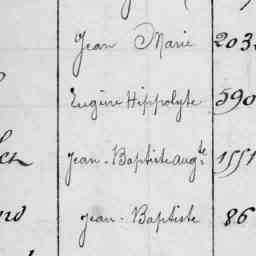 Jean Marie 203
Eugène Hippolyte 590
Jean-Baptiste Aug.te 1551
Jean-Baptiste 86